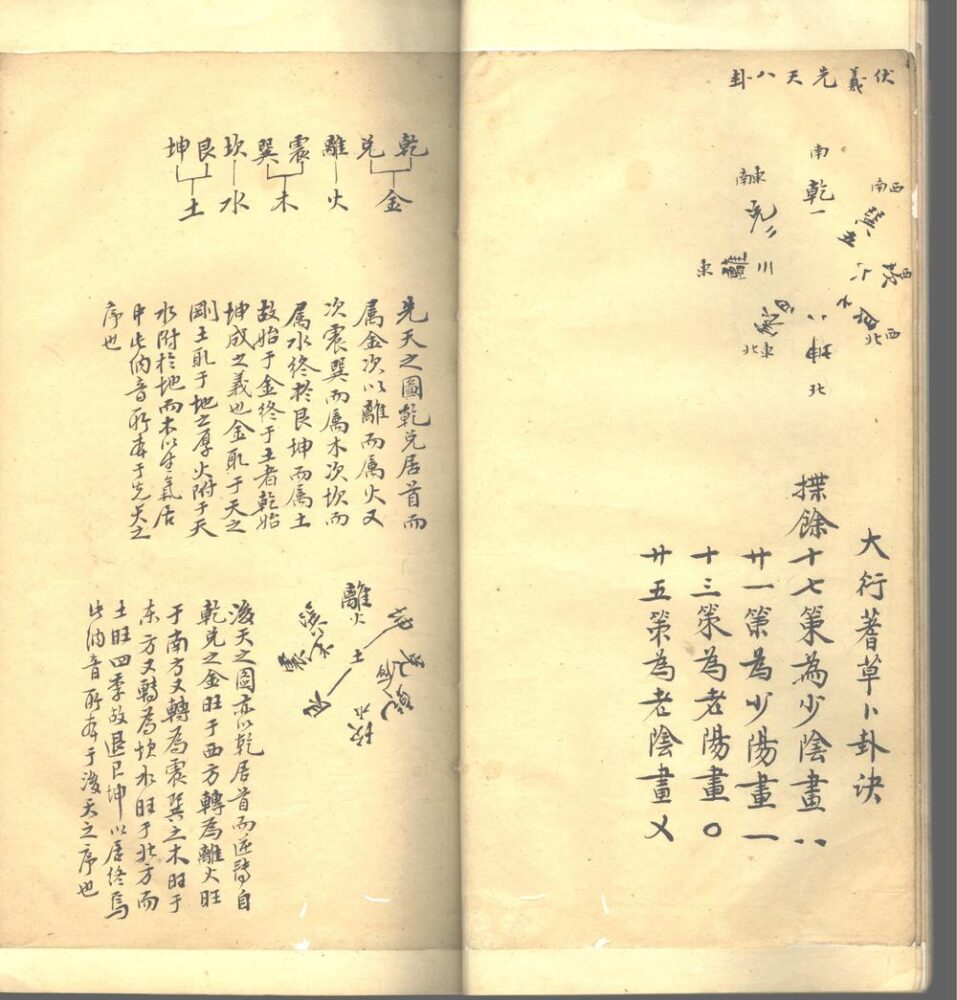 伏羲先天八卦
南
乾一
東南
兌二
東
離三
東北
震四
西南
巽五
西
坎六
西北
艮七
坤八
北
大行蓍草卜卦决
揲餘十七策為少陰畫、、
廿一策為少陽畫一
十三策為老陽畫〇
廿五策為老陰畫乂
乾兌離震巽坎艮坤
金火木水土
先天之圖乾兌居首而
属金次以離而属火又
次震巽而属木次坎而
属水終於艮坤而属土
故始于金終于土者乾始
坤成之義也金取于天之
剛土取于地之厚火附于天
水附於地而木以生氣居
中此納音所本于先天之
序也
離火
坤
兌
金
乾
土
巽木
震
艮
坎水
後天之圖亦以乾居首而逆轉自
乾兌之金旺于西方轉為離火旺
于南方又轉為震巽之木旺于
东方又轉為坎水旺于北方而
土旺四季故退艮坤以居終焉
此納音所本于後天之序也